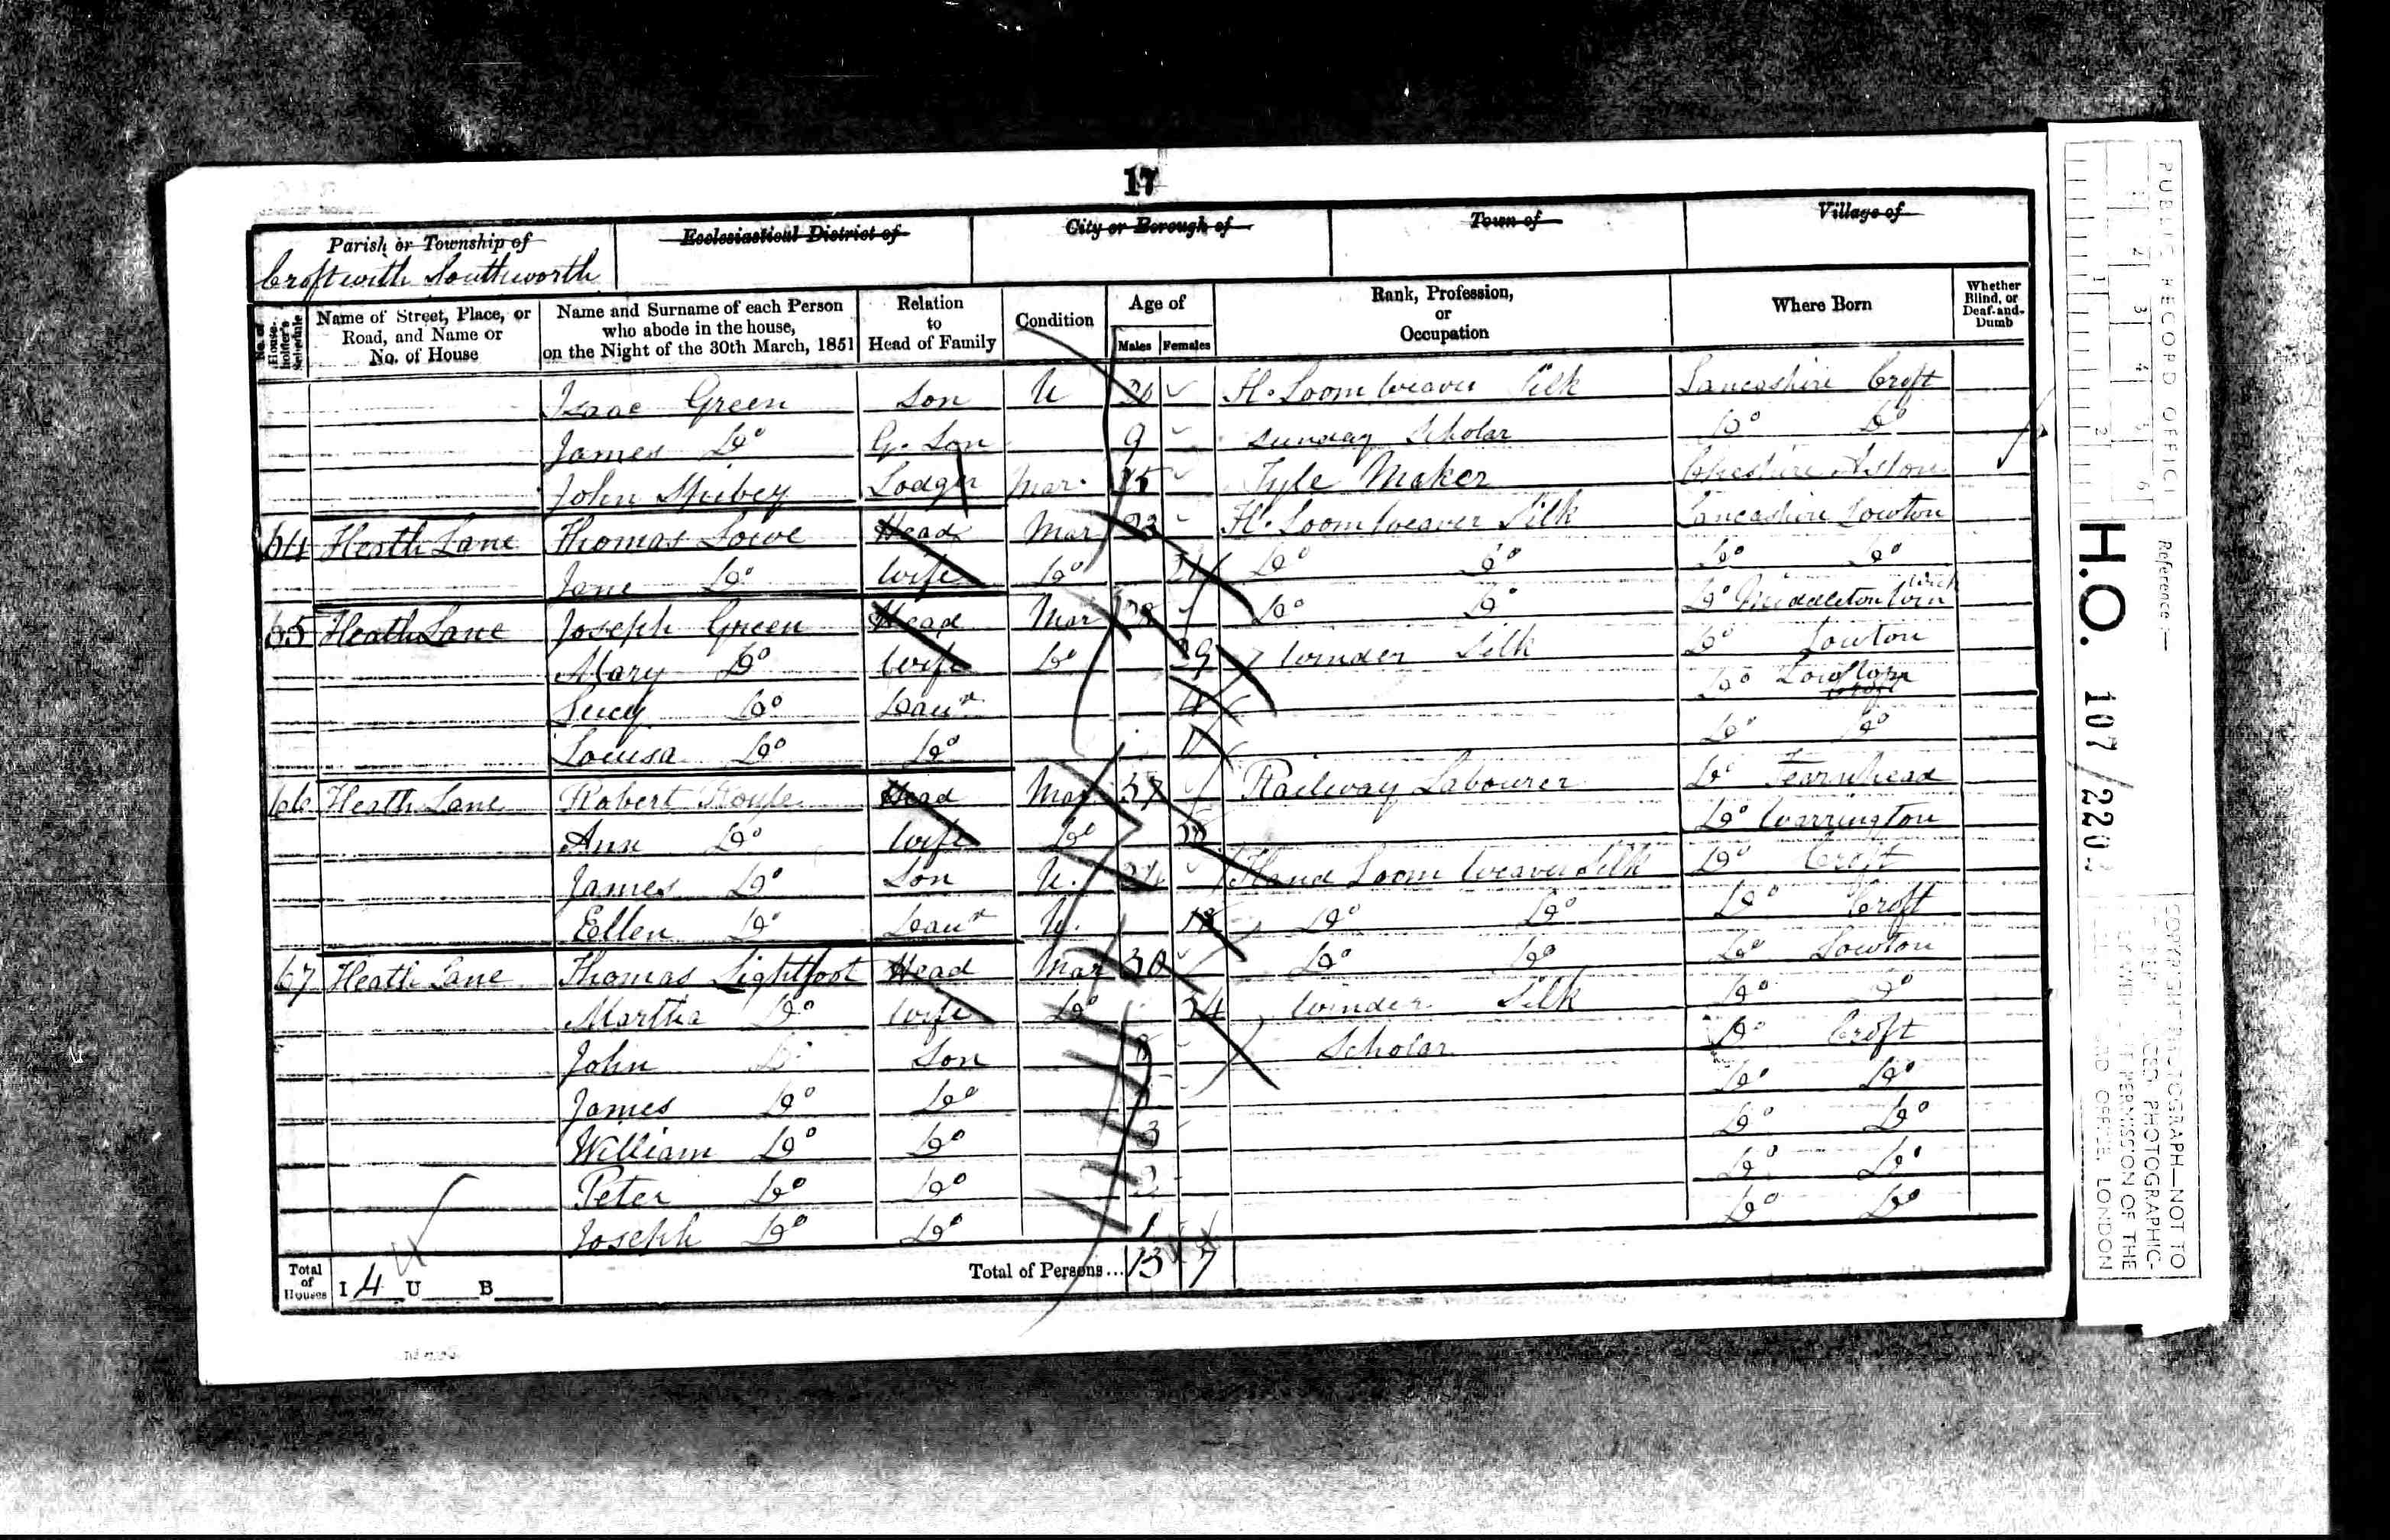 17
Parish or Township of
Ecclesiastical District of
City or Borough of
Town of
Village of
Croft with Southworth
No. of House-holder's Schedule
Name of Street, Place, or Road, and Name or No. of House
Name and Surname of each Person who abode in the house, on the Night of the 30th March, 1851
Relation to Head of Family
Condition
Age of
Males Females
Rank, Profession, or Occupation
Where Born
Whether Blind, or Deaf-and-Dumb
Isaac Green Son U H. Loom Weaver Silk Lancashire Croft
James Do G. Son 9 Sunday Scholar Do Do
John Lodger Mar. Tyle Maker Cheshire
64 Heath Lane Thomas Lowe Head Mar H. Loom Weaver Silk Lancashire Lowton
Jane Do Wife Do Do Do Do Do
65 Heath Lane Joseph Green Head Mar Do Do Do Middleton
Mary Do Wife Do 39 Winder Silk Do Lowton
Lucy Do Daur Do Lowton
Louisa Do Do 1 Do Do
66 Heath Lane Robert Head Mar 57 Railway Labourer Do Fearnhead
Ann Do Wife Do Do Warrington
James Do Son U. Hand Loom Weaver Silk Do Croft
Ellen Do Daur U. 18 Do Do Do Croft
67 Heath Lane Thomas Lightfoot Head Mar 30 Do Do Do Lowton
Martha Do Wife Do 34 Winder Silk Do Do
John Do Son Scholar Do Croft
James Do Do Do Do
William Do Do 3 Do Do
Peter Do Do 2 Do Do
Joseph Do Do 1 Do Do
Total of Houses I 4 U B Total of Persons... 13 7
PUBLIC RECORD OFFICE
1 2 3 4 5 6
1 2
Reference:—
H.O. 107/220
COPYRIGHT PHOTOGRAPH—NOT TO
PHOTOGRAPHIC-
PERMISSION OF THE
OFFICE, LONDON